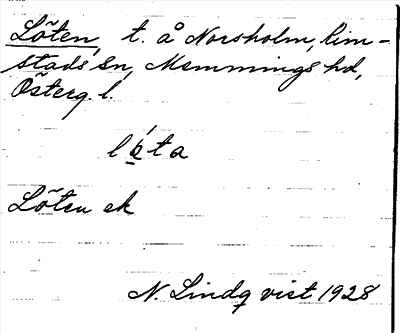 Löten, t. å Norsholm, Kim-
stads sn, Memmings hd,
Österg. l.
Löten ek
N. Lindqvist 1928